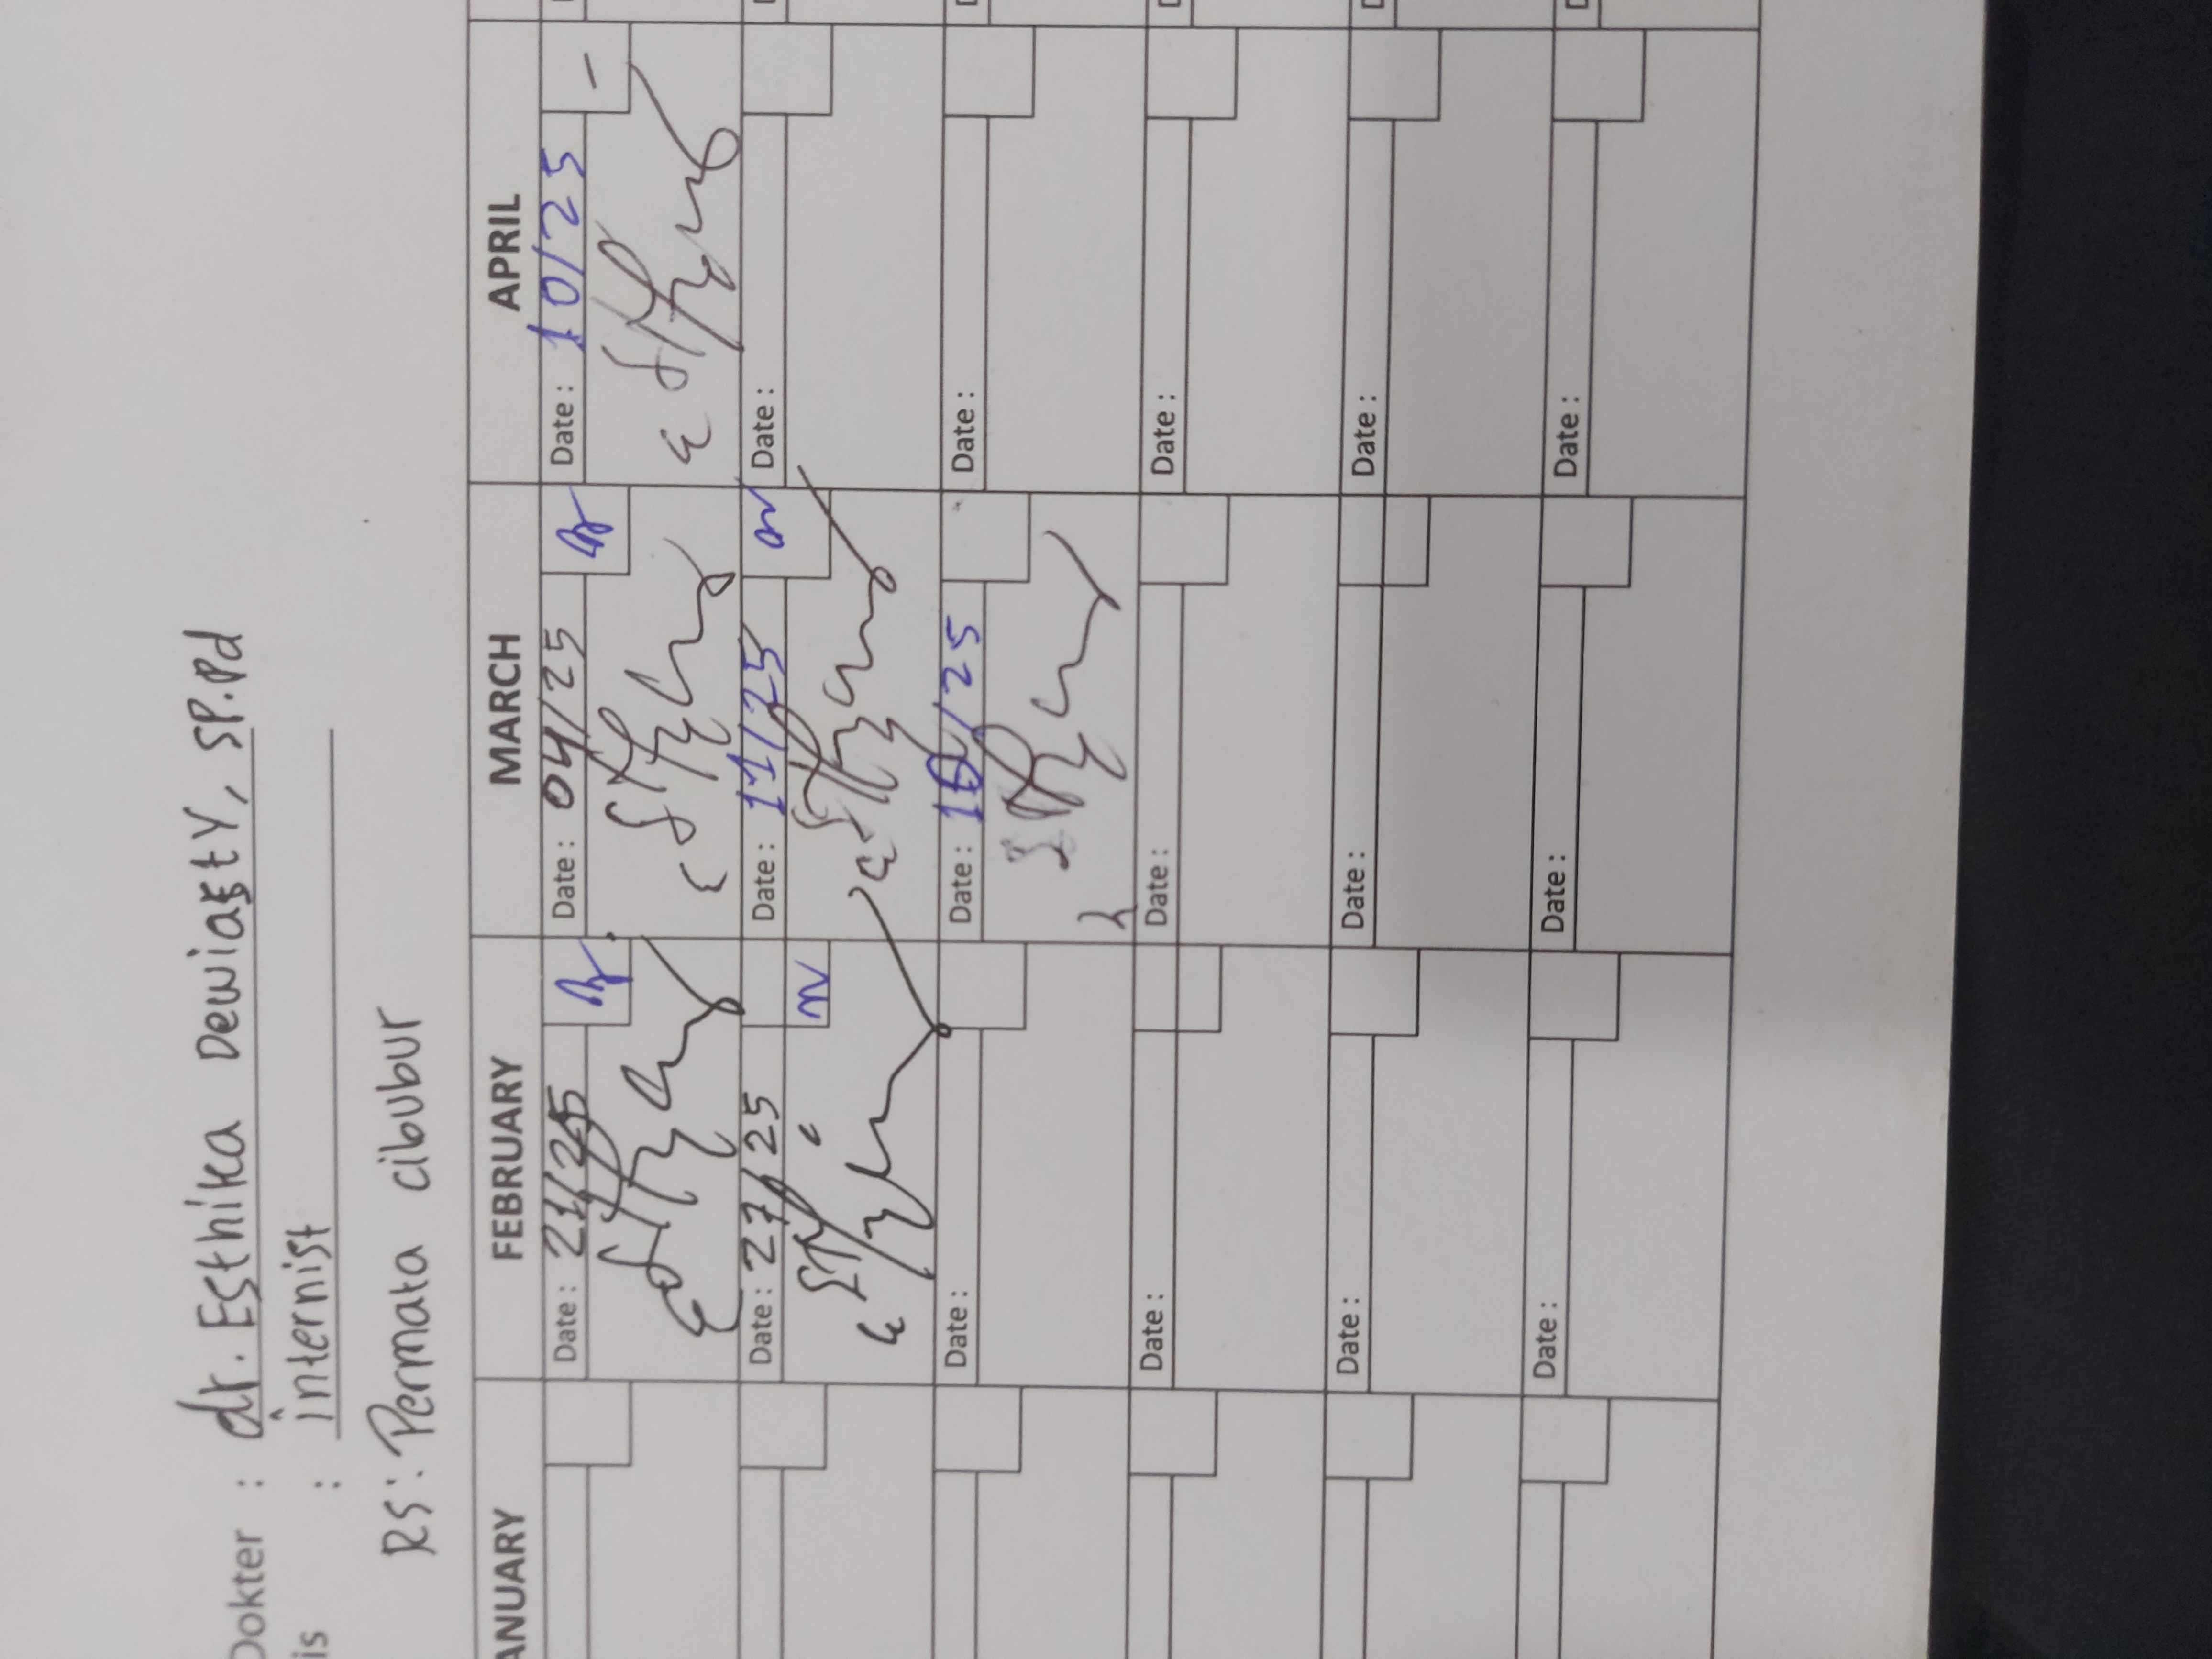 Dokter : dr. Esthika Dewiasty, SP.Pd
is : internist
RS : Permata cibubur
ANUARY FEBRUARY MARCH APRIL
Date : 21/25 Date : 04/25 Date : 10/25
Date : 27/25 Date : 11/25 Date :
Date : Date : /25 Date :
Date : Date : Date :
Date : Date : Date :
Date : Date : Date :